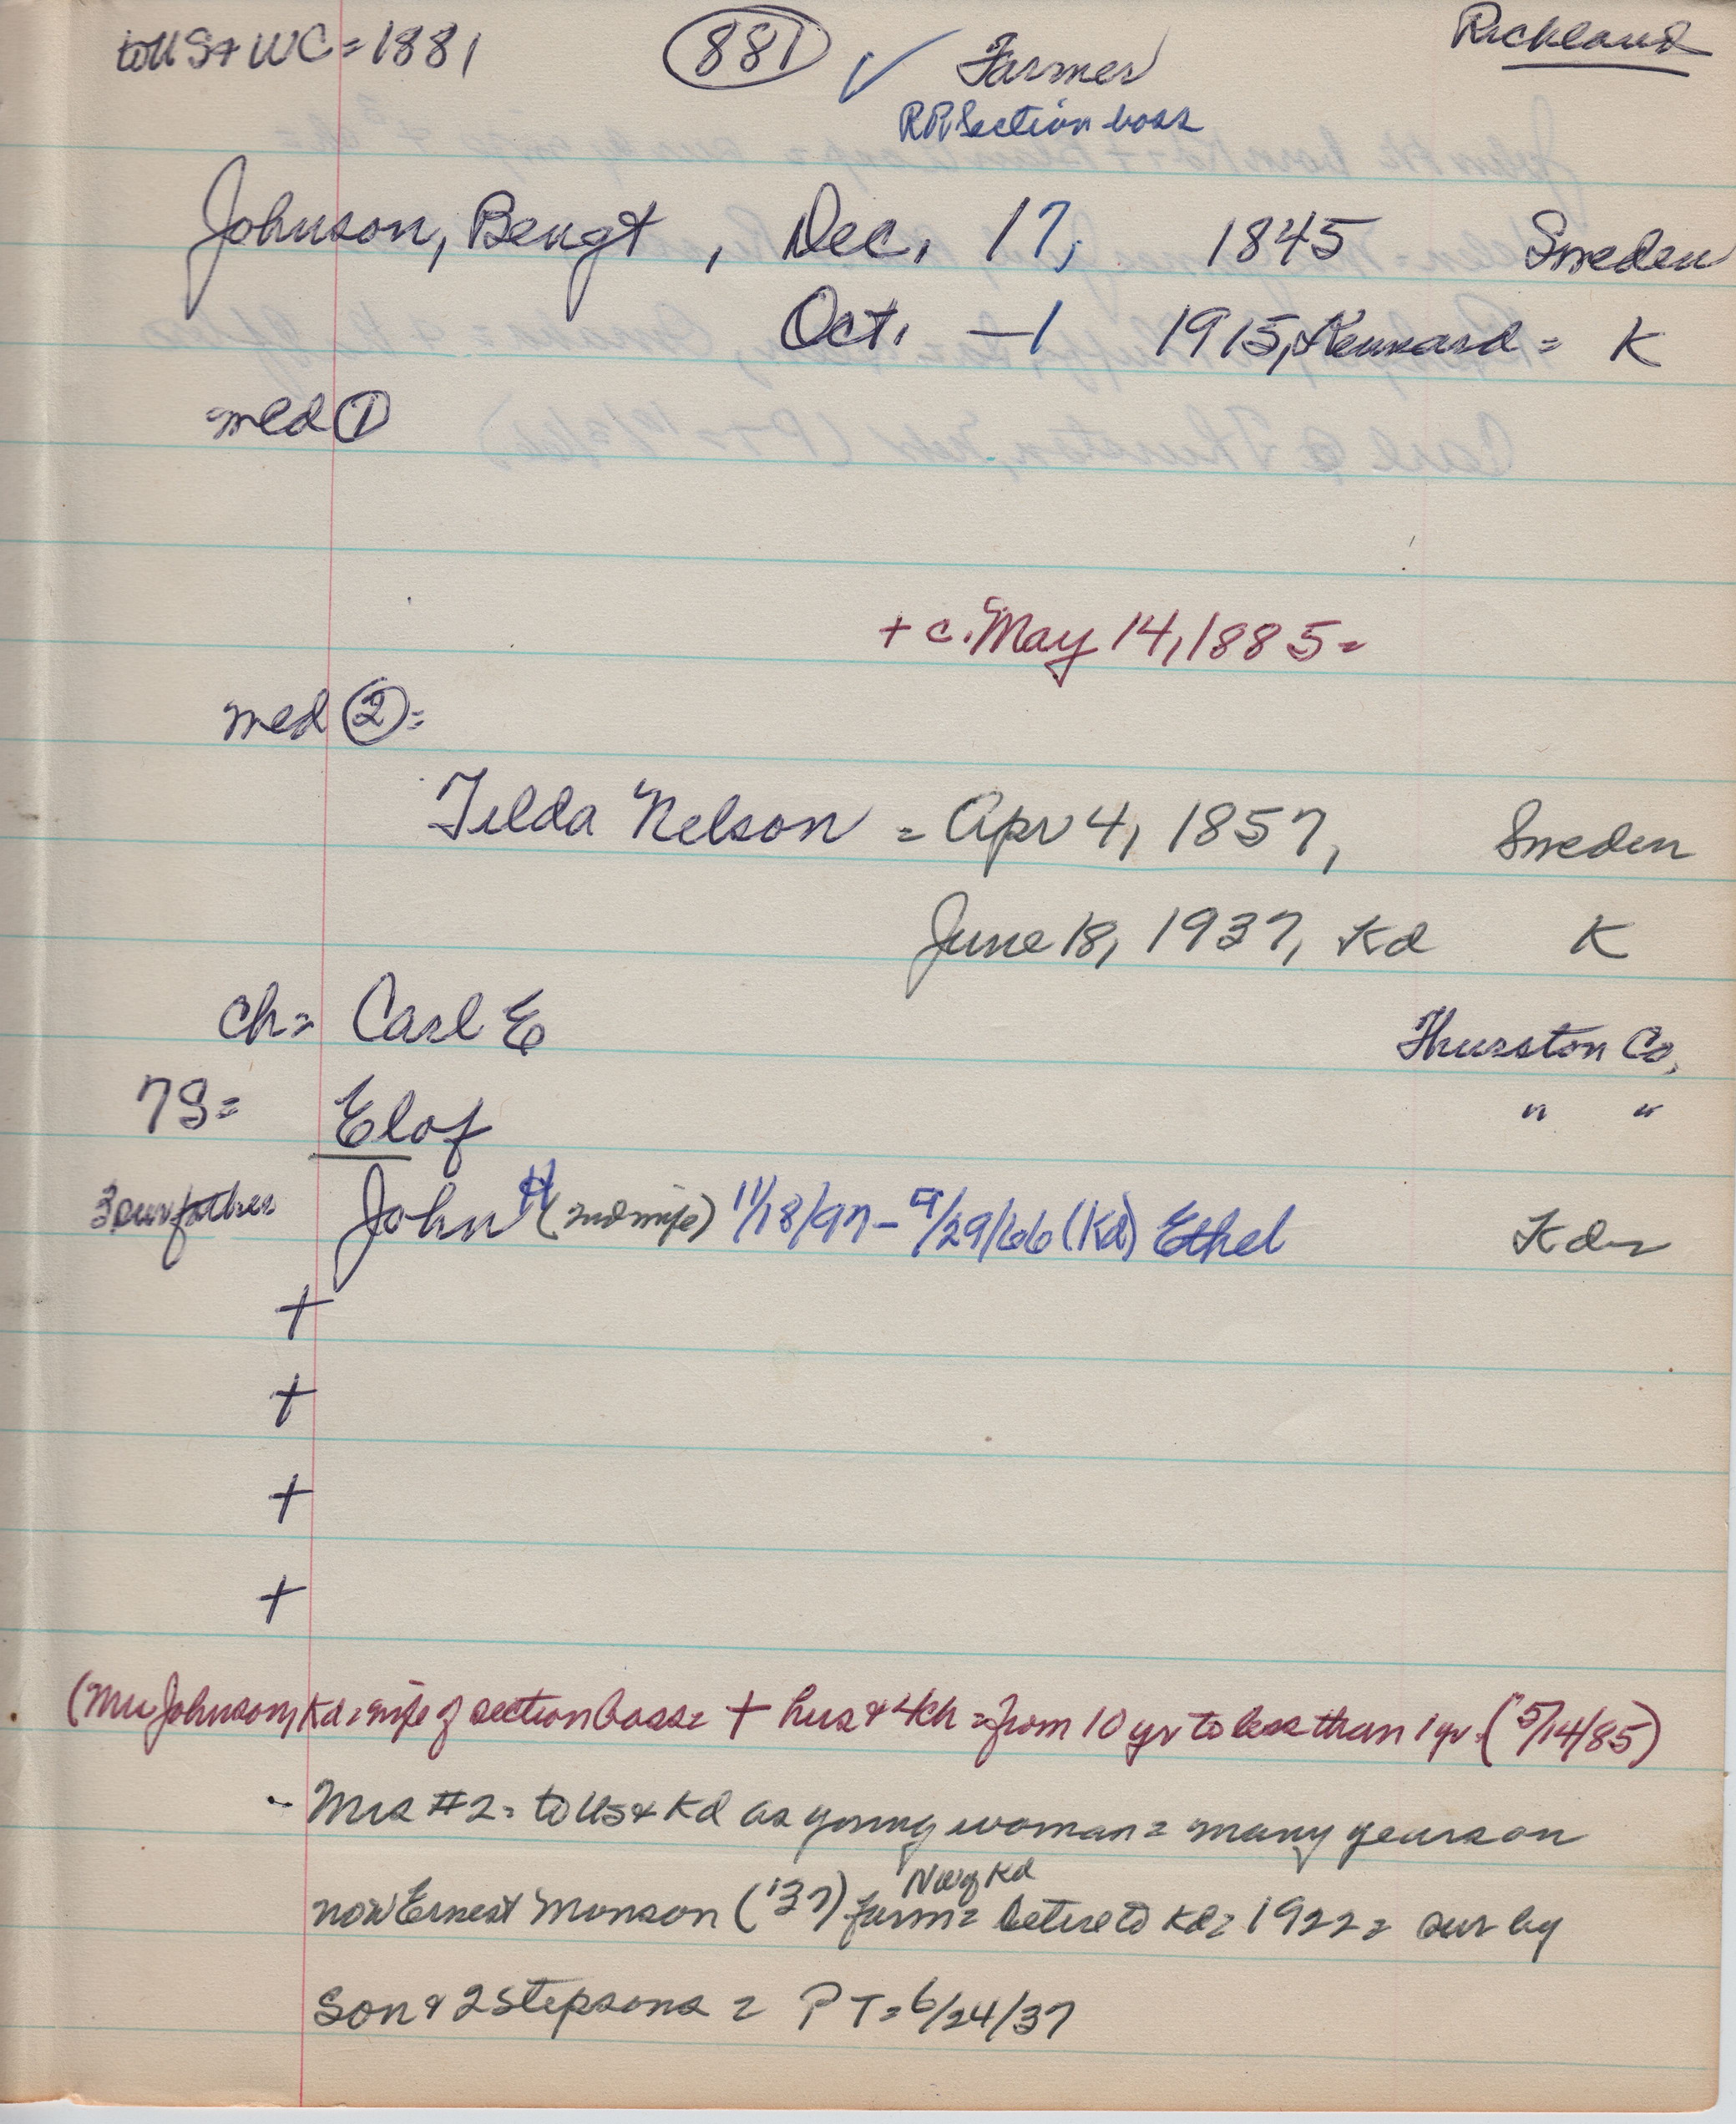 to US & WC = 1881 881 ✓ Farmer Richland
RR Section boss
Johnson, Bengt, Dec. 17, 1845 Sweden
Oct. -1 1915, Kennard = K
med ①
+ c. May 14, 1885 =
med ② =
Tilda Nelson = Apr 4, 1857, Sweden
June 18, 1937, Kd K
ch = Carl E Thurston Co,
7S = Elof " "
3 sur father John H (2nd wife) 11/18/97 - 9/29/66 (Kd) Ethel Kd =
+
+
+
+
(Mrs Johnson, Kd = wife of section boss = + hus & 4 ch = from 10 yr to less than 1 yr. (5/14/85)
- Mrs #2 = to US & Kd as young woman = many years on
now Ernest Monson ('37) farm = NW of Kd retire to Kd = 1922 = sur by
son & 2 stepsons = PT = 6/24/37